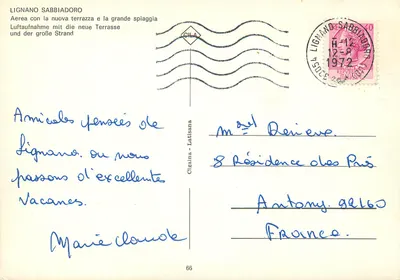 LIGNANO SABBIADORO
Aerea con la nuova terrazza e la grande spiaggia
Luftaufnahme mit die neue Terrasse
und der große Strand
33054 LIGNANO SABBIADORO (UDINE)
12-8
1972
Amicales pensées de
Lignano. ou nous
passons d'excellentes
Vacances.
Marie Claude
Cignina - Latisana
Denieve.
8 Résidence des Prés
Antony. 92160
France.
66